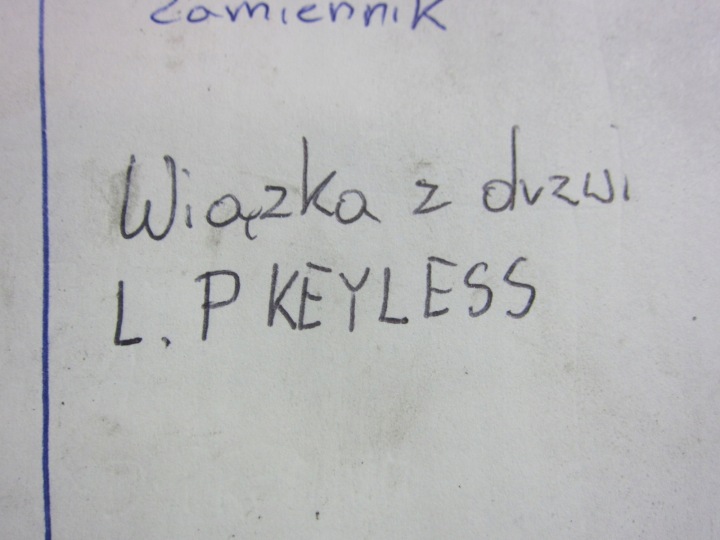 Zamiennik
Wiązka z drzwi
L. P KEYLESS